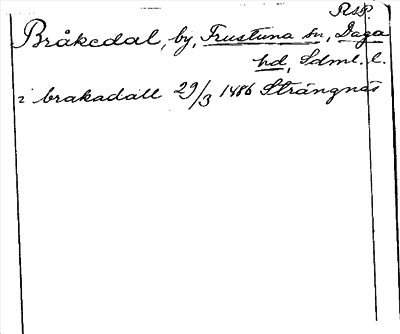 RAP.
Bråkedal, by, Frustuna sn, Daga
hd, Sdml. l.
i brakadall 29/3 1486 Strängnäs